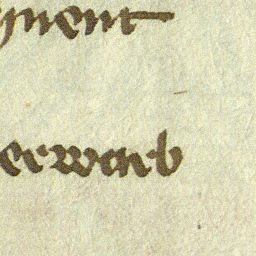 ynent
erwarb